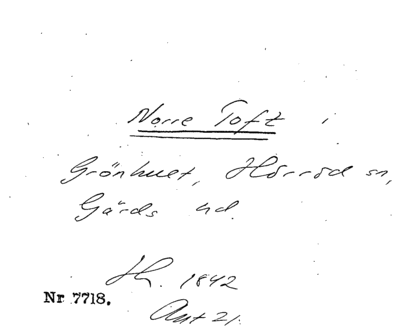 Norre Toft i
Grönhult, Hörröd sn,
Gärds hd.
Sk. 1842
Nr 7718.
Akt 21.